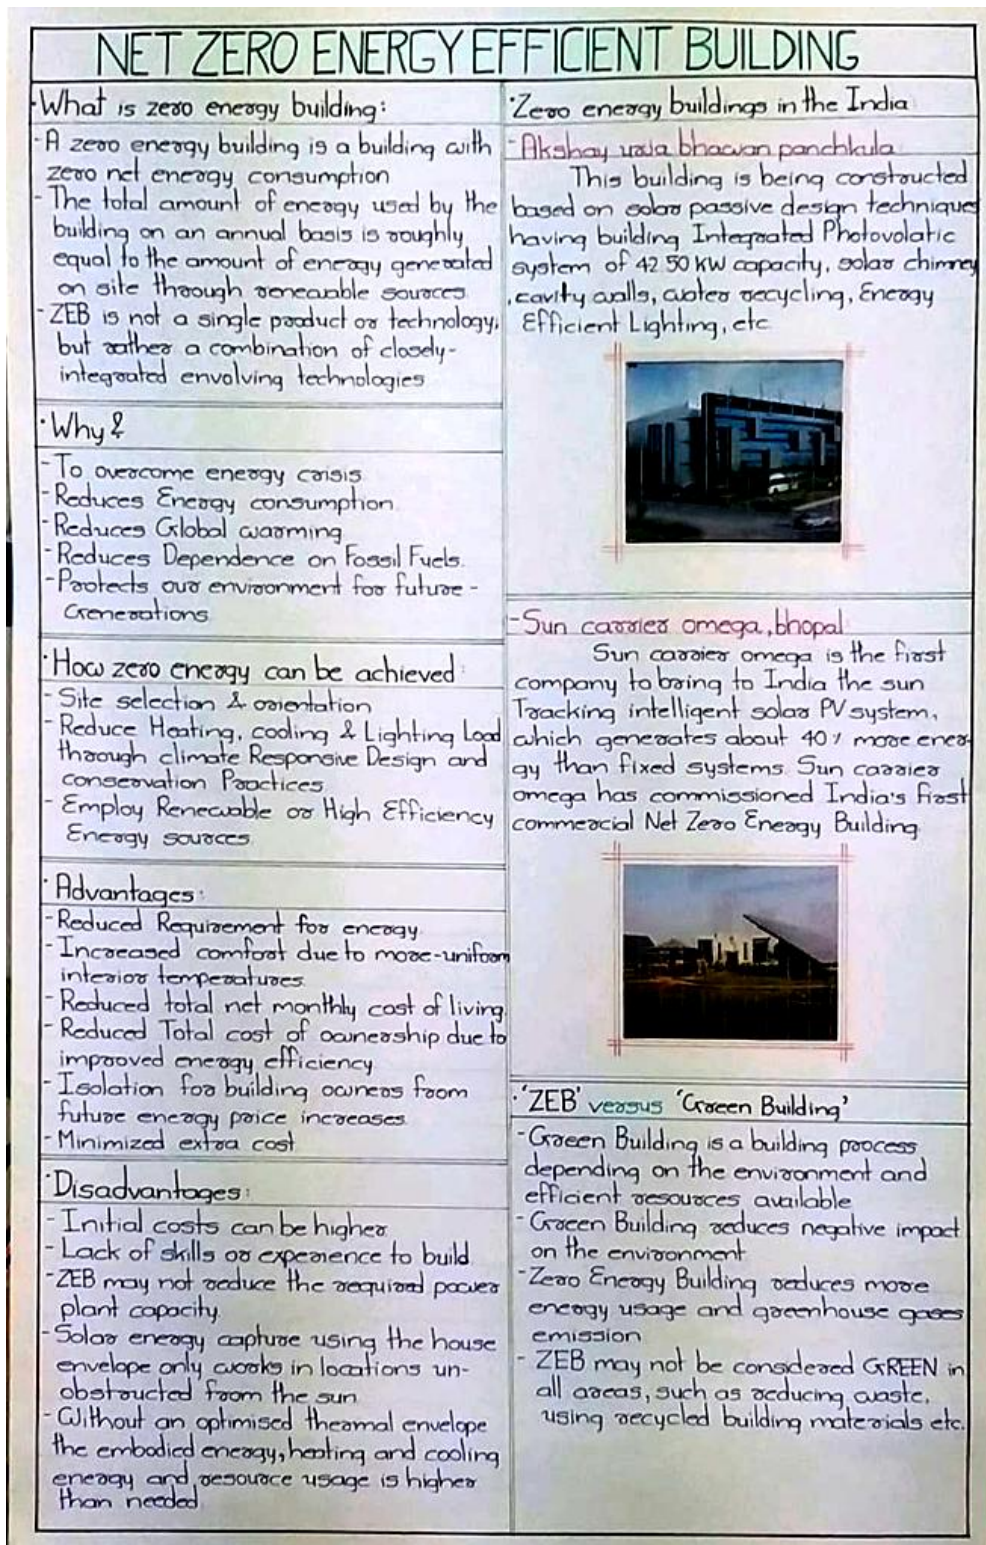 NET ZERO ENERGY EFFICIENT BUILDING
·What is zero energy building:
-A zero energy building is a building with
zero net energy consumption
-The total amount of energy used by the
building on an annual basis is roughly
equal to the amount of energy generated
on site through renewable sources
-ZEB is not a single product or technology,
but rather a combination of closely-
integrated envolving technologies
·Why &
-To overcome energy crisis
-Reduces Energy consumption
-Reduces Global warming
-Reduces Dependence on Fossil Fuels.
-Protects our environment for future-
Generations
·How zero energy can be achieved
-Site selection & orientation
-Reduce Heating, cooling & Lighting Load
through climate Responsive Design and
conservation Practices
-Employ Renewable or High Efficiency
Energy sources
·Advantages:
-Reduced Requirement for energy
-Increased comfort due to more-uniform
interior temperatures.
-Reduced total net monthly cost of living
-Reduced Total cost of ownership due to
improved energy efficiency
-Isolation for building owners from
future energy price increases
-Minimized extra cost
·Disadvantages:
-Initial costs can be higher
-Lack of skills or experience to build
-ZEB may not reduce the required power
plant capacity.
-Solar energy capture using the house
envelope only works in locations un-
obstructed from the sun
-Without an optimised thermal envelope
the embodied energy, heating and cooling
energy and resource usage is higher
than needed
·Zero energy buildings in the India
-Akshay urja bhawan panchkula
This building is being constructed
based on solar passive design technique
having building Integrated Photovolatic
system of 42.50 KW capacity, solar chimney
,cavity walls, water recycling, Energy
Efficient Lighting, etc
-Sun carrier omega, bhopal
Sun carrier omega is the first
company to bring to India the sun
Tracking intelligent solar PV system,
which generates about 40% more ener-
gy than fixed systems. Sun carrier
omega has commissioned India's first
commercial Net Zero Energy Building
·'ZEB' versus 'Green Building'
-Green Building is a building process
depending on the environment and
efficient resources available
-Green Building reduces negative impact
on the environment
-Zero Energy Building reduces more
energy usage and greenhouse gases
emission
-ZEB may not be considered GREEN in
all areas, such as reducing waste,
using recycled building materials etc.